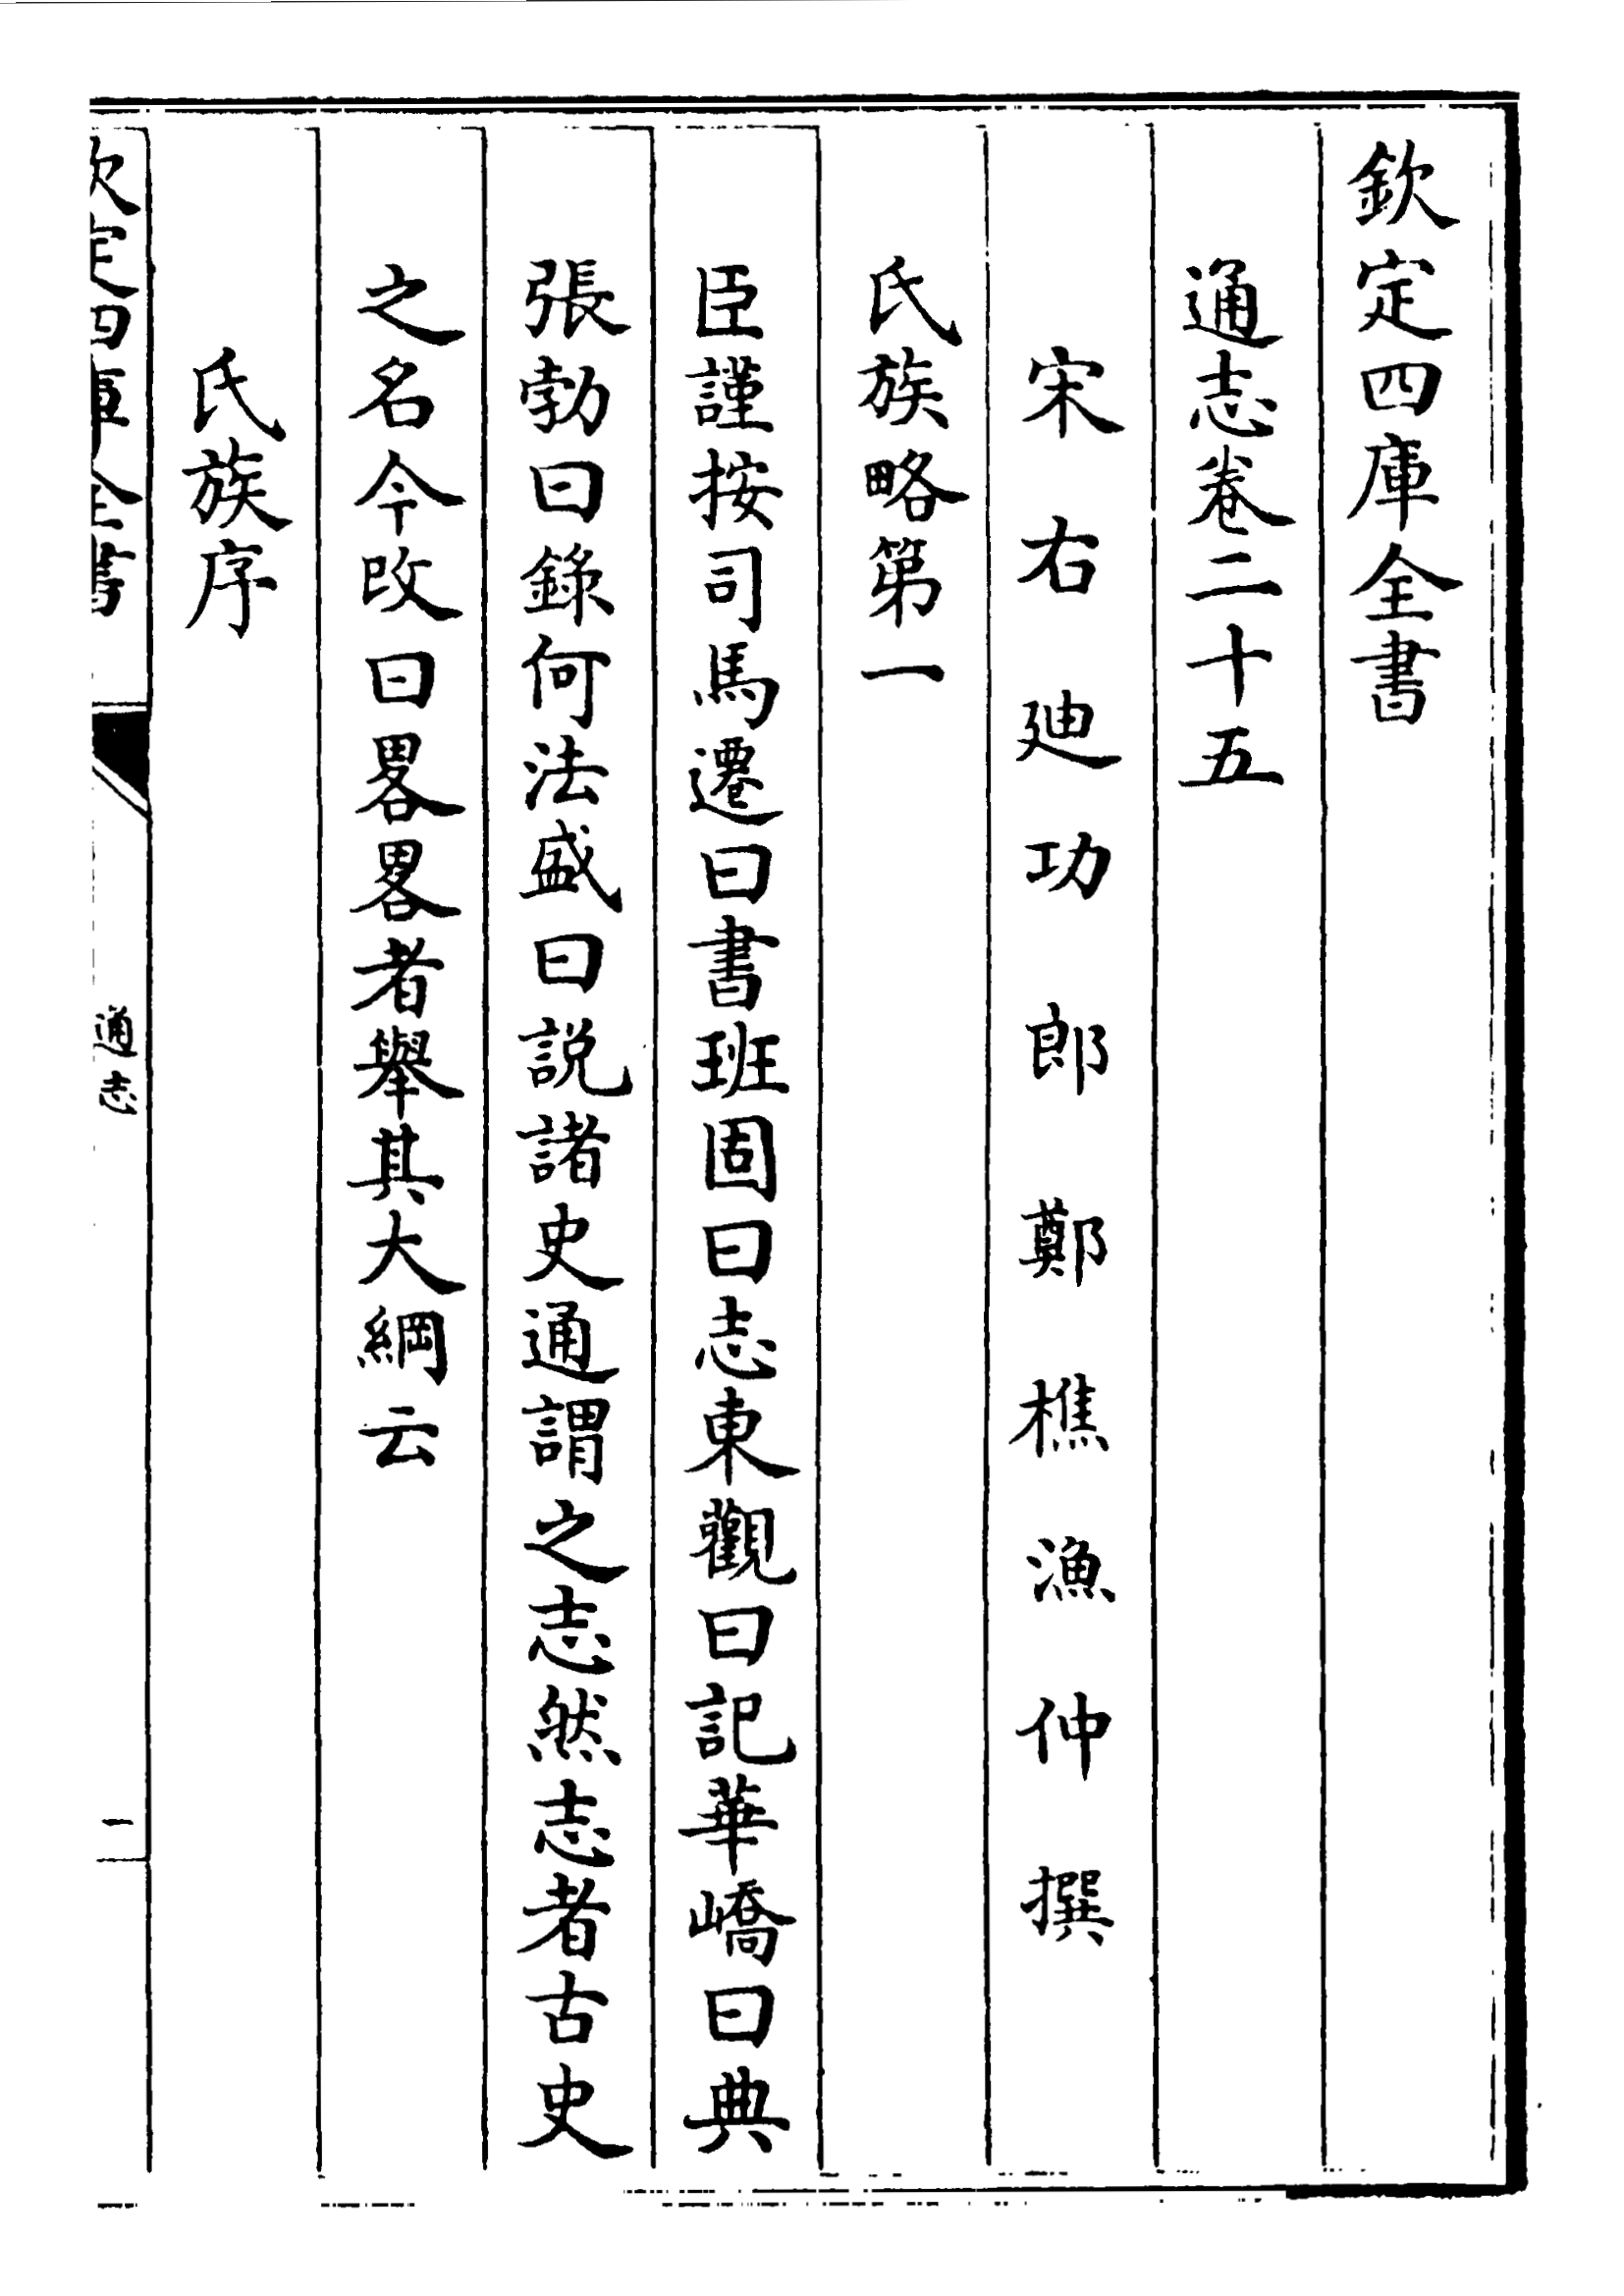 欽定四庫全書
通志卷二十五
宋右廸功郎鄭樵漁仲撰
氏族略第一
臣謹按司馬遷曰書班固曰志東觀曰記華嶠曰典
張勃曰錄何法盛曰説諸史通謂之志然志者古史
之名今改曰畧畧者舉其大綱云
氏族序
欽定四庫全書
通志
一